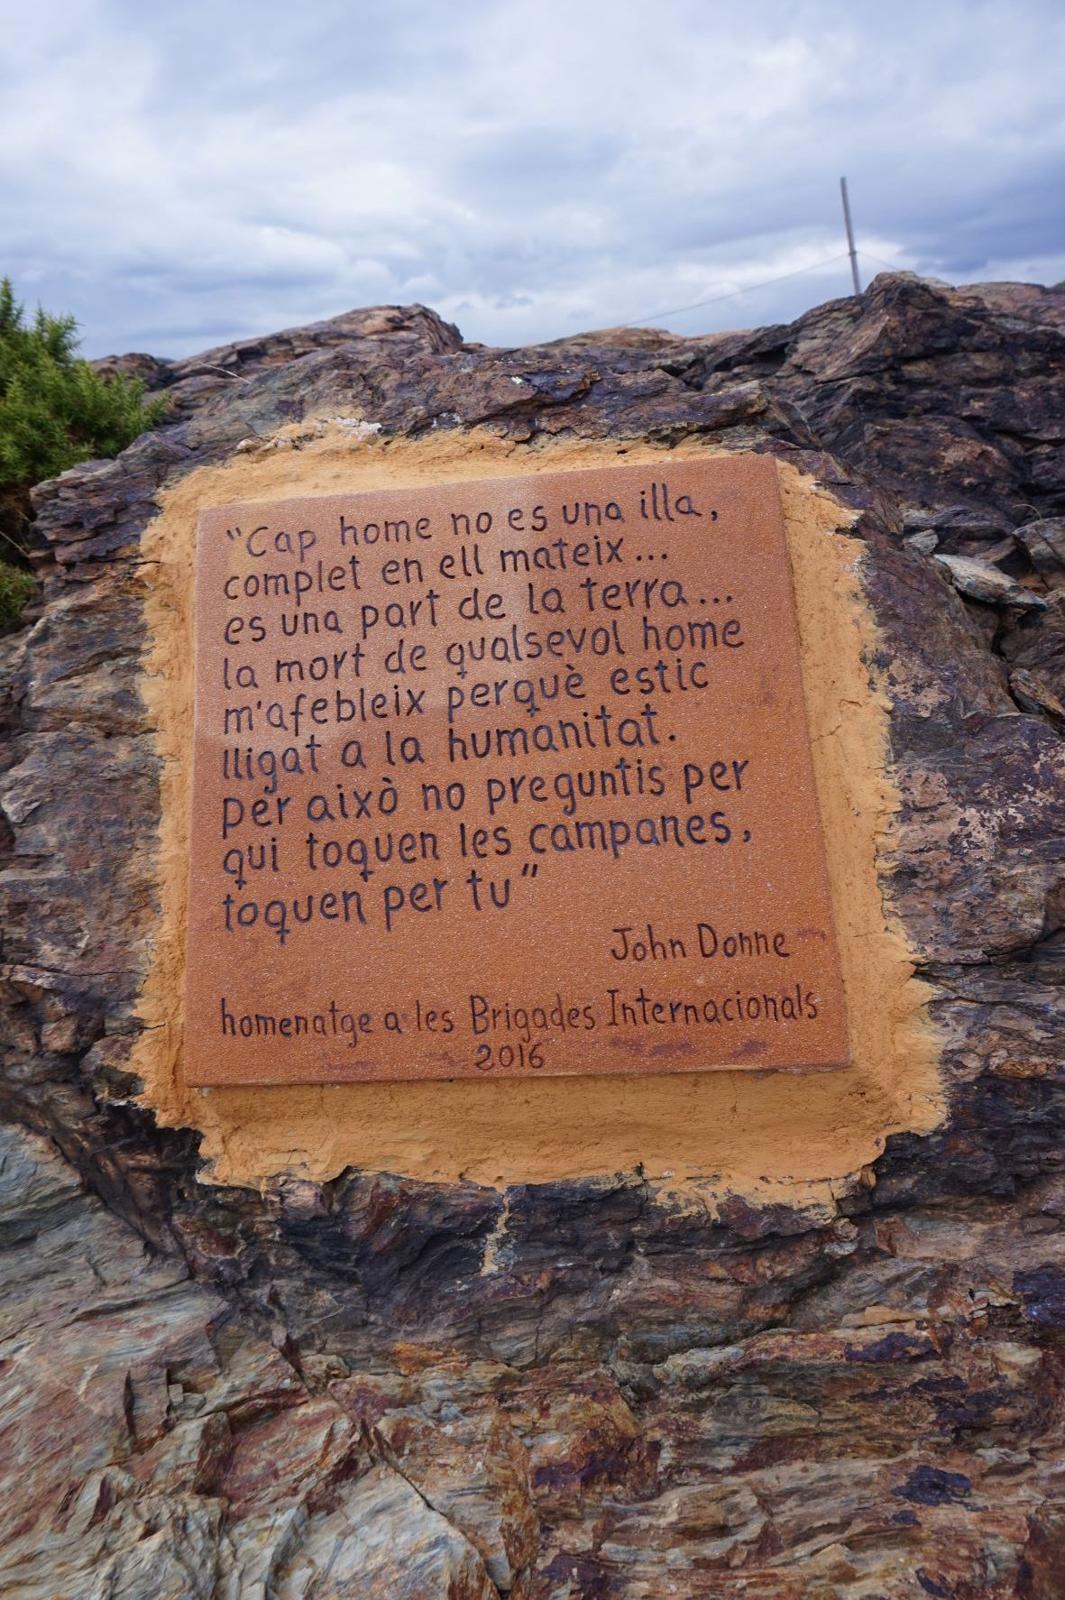 "Cap home no es una illa,
complet en ell mateix...
es una part de la terra...
la mort de qualsevol home
m'afebleix perquè estic
lligat a la humanitat.
per això no preguntis per
qui toquen les campanes,
toquen per tu"
John Donne
homenatge a les Brigades Internacionals
2016